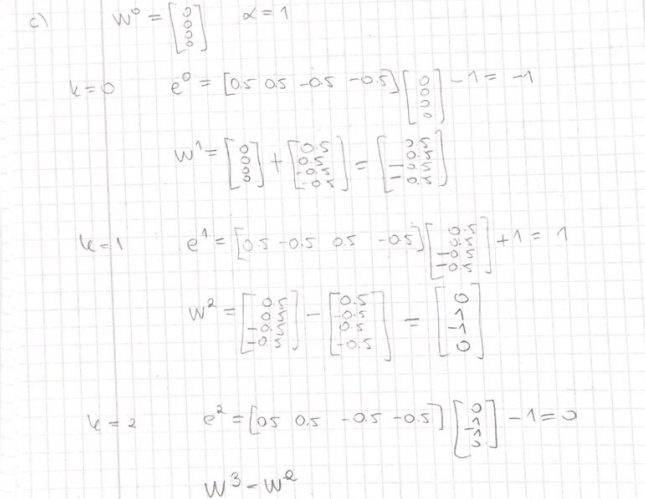 c) W⁰ = [0 0 0 0] α = 1
k=0 e⁰ = [0.5 0.5 -0.5 -0.5] [0 0 0 0] - 1 = -1
W¹ = [0 0 0 0] + [0.5 0.5 -0.5 -0.5] = [0.5 0.5 -0.5 -0.5]
k=1 e¹ = [0.5 -0.5 0.5 -0.5] [0.5 0.5 -0.5 -0.5] + 1 = 1
W² = [0.5 0.5 -0.5 -0.5] - [0.5 -0.5 0.5 -0.5] = [0 1 -1 0]
k=2 e² = [0.5 0.5 -0.5 -0.5] [0 1 -1 0] - 1 = 0
W³ = W²